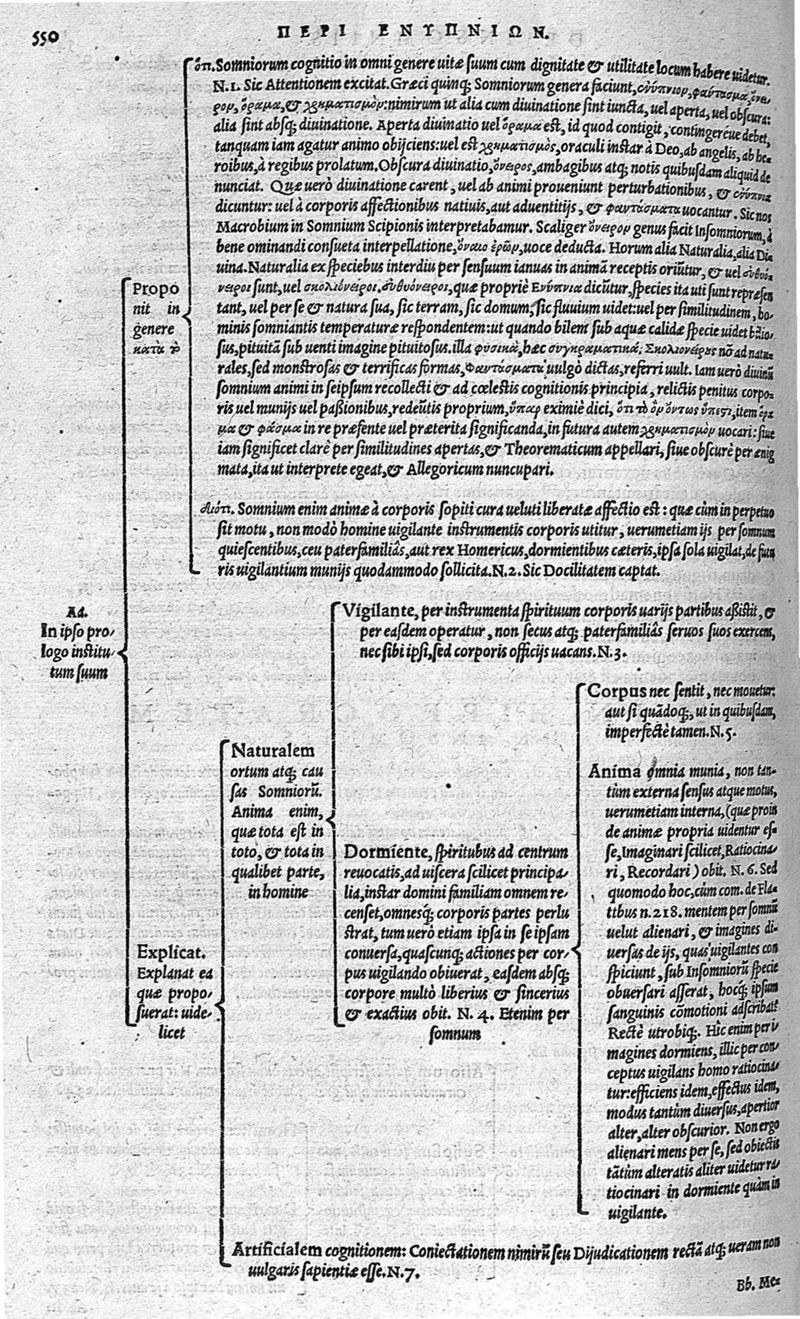 550
ΠΕΡΙ ΕΝΥΠΝΙΩΝ.
ὅτι. Somniorum cognitio in omni genere uitæ suum cum dignitate & utilitate locum habere uidetur.
N.1. Sic Attentionem excitat. Græci quinq; Somniorum genera faciunt, ἐνύπνιον, φαύτασμα, ὄνει-
ρον, ὅραμα, & χρηματισμὸν: nimirum ut alia cum diuinatione sint iuncta, uel aperta, uel obscura:
alia sint absq; diuinatione. Aperta diuinatio uel ὅραμα est, id quod contigit, contingereue debet,
tanquam iam agatur animo obijciens: uel est χρηματισμὸς, oraculi instar à Deo, ab angelis, ab he-
roibus, à regibus prolatum. Obscura diuinatio, ὄνειρος, ambagibus atq; notis quibusdam aliquid de
nunciat. Quæ uerò diuinatione carent, uel ab animi proueniunt perturbationibus, & ἐνύπνια
dicuntur: uel à corporis affectionibus natiuis, aut aduentitijs, & φαντάσματα uocantur. Sic nos
Macrobium in Somnium Scipionis interpretabamur. Scaliger ὄνειρον genus facit Insomniorum, à
bene ominandi consueta interpellatione, ὄναιο ἐρῶν, uoce deducta. Horum alia Naturalia, alia Di-
uina. Naturalia ex speciebus interdiu per sensuum ianuas in animā receptis oriūtur, & uel εὐθυό-
νειροι sunt, uel σκολιόνειροι, εὐθυόνειροι, quæ propriè Ενύπνια dicūtur, species ita uti sunt repræsen
tant, uel per se & natura sua, sic terram, sic domum, sic fluuium uidet: uel per similitudinem, ho-
minis somniantis temperaturæ respondentem: ut quando bilem sub aquæ calidæ specie uidet bilio-
sus, pituitā sub uenti imagine pituitosus. illa φυσικὰ, hæc συγκραματικά. Σκολιονείρους nō ad natu-
rales, sed monstrosas & terrificas formas, Φαντάσματα uulgò dictas, referri uult. Iam uerò diuinū
somnium animi in seipsum recollecti & ad cœlestis cognitionis principia, relictis penitus corpo-
ris uel munijs uel passionibus, redeūtis proprium, ὕπαρ eximiè dici, ὅτι τὸ ὂν ὄντως item ὅρα-
μα & φάσμα in re præsente uel præterita significanda, in futura autem χρηματισμὸν uocari: siue
iam significet clarè per similitudines apertas, & Theorematicum appellari, siue obscurè per ænig
mata, ita ut interprete egeat, & Allegoricum nuncupari.
διότι. Somnium enim animæ à corporis sopiti cura ueluti liberatæ affectio est: quæ cùm in perpetuo
sit motu, non modò homine uigilante instrumentis corporis utitur, uerumetiam ijs per somnum
quiescentibus, ceu paterfamiliâs, aut rex Homericus, dormientibus cæteris, ipsa sola uigilat, de futu
ris uigilantium munijs quodammodo sollicita. N.2. Sic Docilitatem captat.
Propo
nit in
genere
κατὰ τὸ
Ad.
In ipso pro-
logo institu-
tum suum
Explicat.
Explanat ea
quæ propo-
suerat: uide-
licet
Naturalem
ortum atq; cau
sas Somniorū.
Anima enim,
quæ tota est in
toto, & tota in
qualibet parte,
in homine
Vigilante, per instrumenta spirituum corporis uarijs partibus assistit, &
per easdem operatur, non secus atq; paterfamiliâs seruos suos exercens,
nec sibi ipsi, sed corporis officijs uacans. N.3.
Dormiente, spiritubus ad centrum
reuocatis, ad uiscera scilicet principa-
lia, instar domini familiam omnem re-
censet, omnesq; corporis partes perlu
strat, tum uerò etiam ipsa in se ipsam
conuersa, quascunq; actiones per cor-
pus uigilando obiuerat, easdem absq;
corpore multò liberius & sincerius
& exactius obit. N. 4. Etenim per
somnum
Corpus nec sentit, nec mouetur:
aut si quādoq;, ut in quibusdam,
imperfectè tamen. N.5.
Anima omnia munia, non tan-
tùm externa sensus atque motus,
uerumetiam interna, (quæ proin
de animæ propria uidentur es-
se, Imaginari scilicet, Ratiocina-
ri, Recordari) obit. N. 6. Sed
quomodo hoc, cùm com. de Fla-
tibus n.218. mentem per somnū
uelut alienari, & imagines di-
uersas de ijs, quas uigilantes con
spiciunt, sub Insomniorū specie
obuersari asserat, hocq; ipsum
sanguinis cōmotioni adscribat?
Rectè utrobiq;. Hîc enim per i-
magines dormiens, illic per con-
ceptus uigilans homo ratiocina-
tur: efficiens idem, effectus idem,
modus tantùm diuersus, apertior
alter, alter obscurior. Non ergo
alienari mens per se, sed obiectis
tātùm alteratis aliter uidetur ra-
tiocinari in dormiente quàm in
uigilante.
Artificialem cognitionem: Coniectationem nimirū seu Dijudicationem rectā atq; ueram non
uulgaris sapientiæ esse. N.7.
Bb. Me=